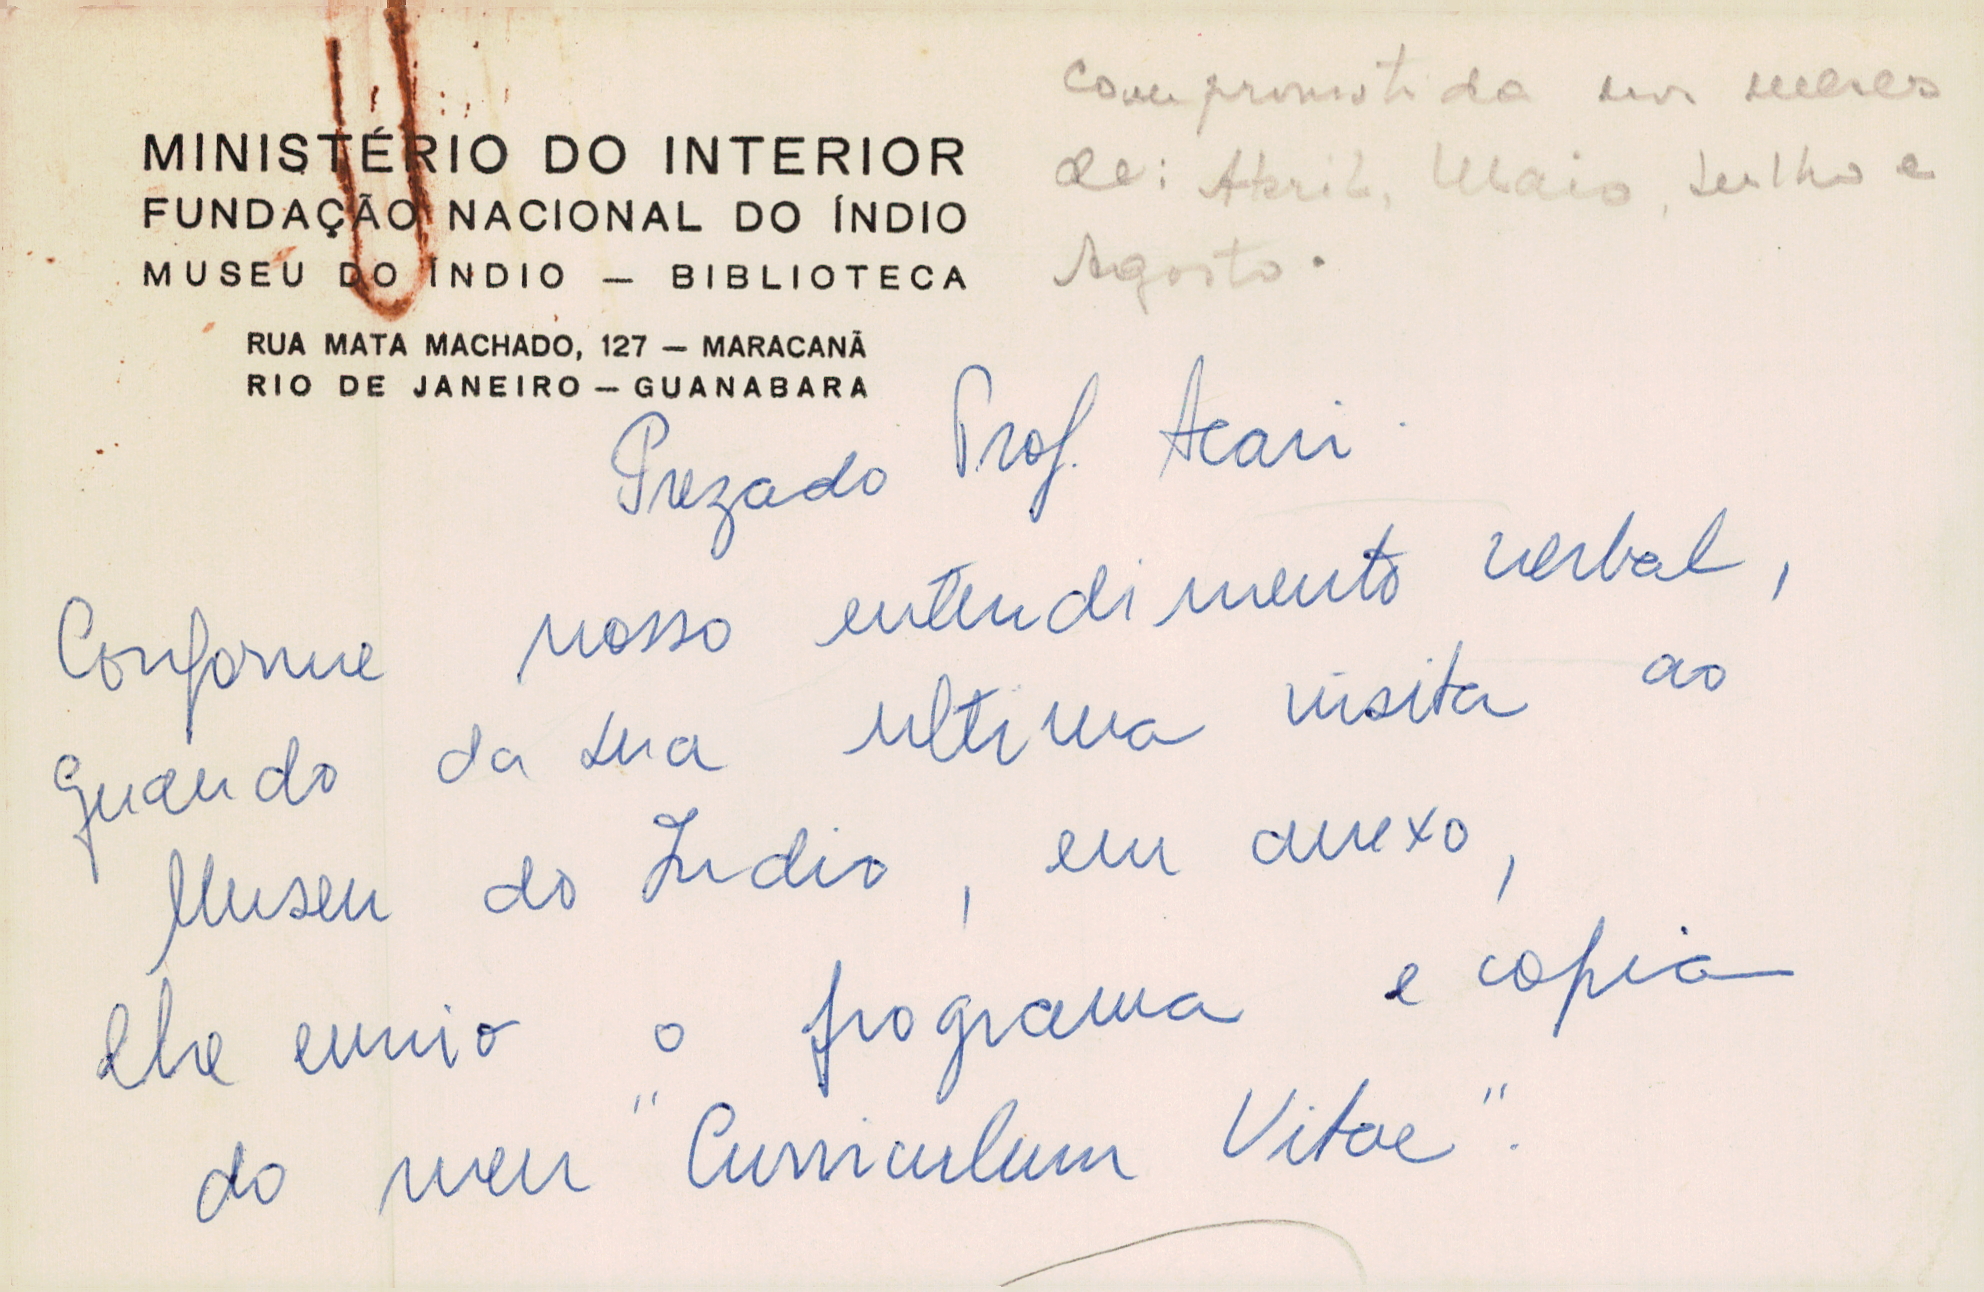 MINISTÉRIO DO INTERIOR
FUNDAÇÃO NACIONAL DO ÍNDIO
MUSEU DO ÍNDIO — BIBLIOTECA
RUA MATA MACHADO, 127 — MARACANÃ
RIO DE JANEIRO — GUANABARA
comprometida nos meses
de: Abril, Maio, Julho e
Agosto.
Prezado Prof. Acari
Conforme nosso entendimento verbal,
quando da sua ultima visita ao
Museu do Indio, em anexo,
lhe envio o programa e copia
do meu "Curriculum Vitae".